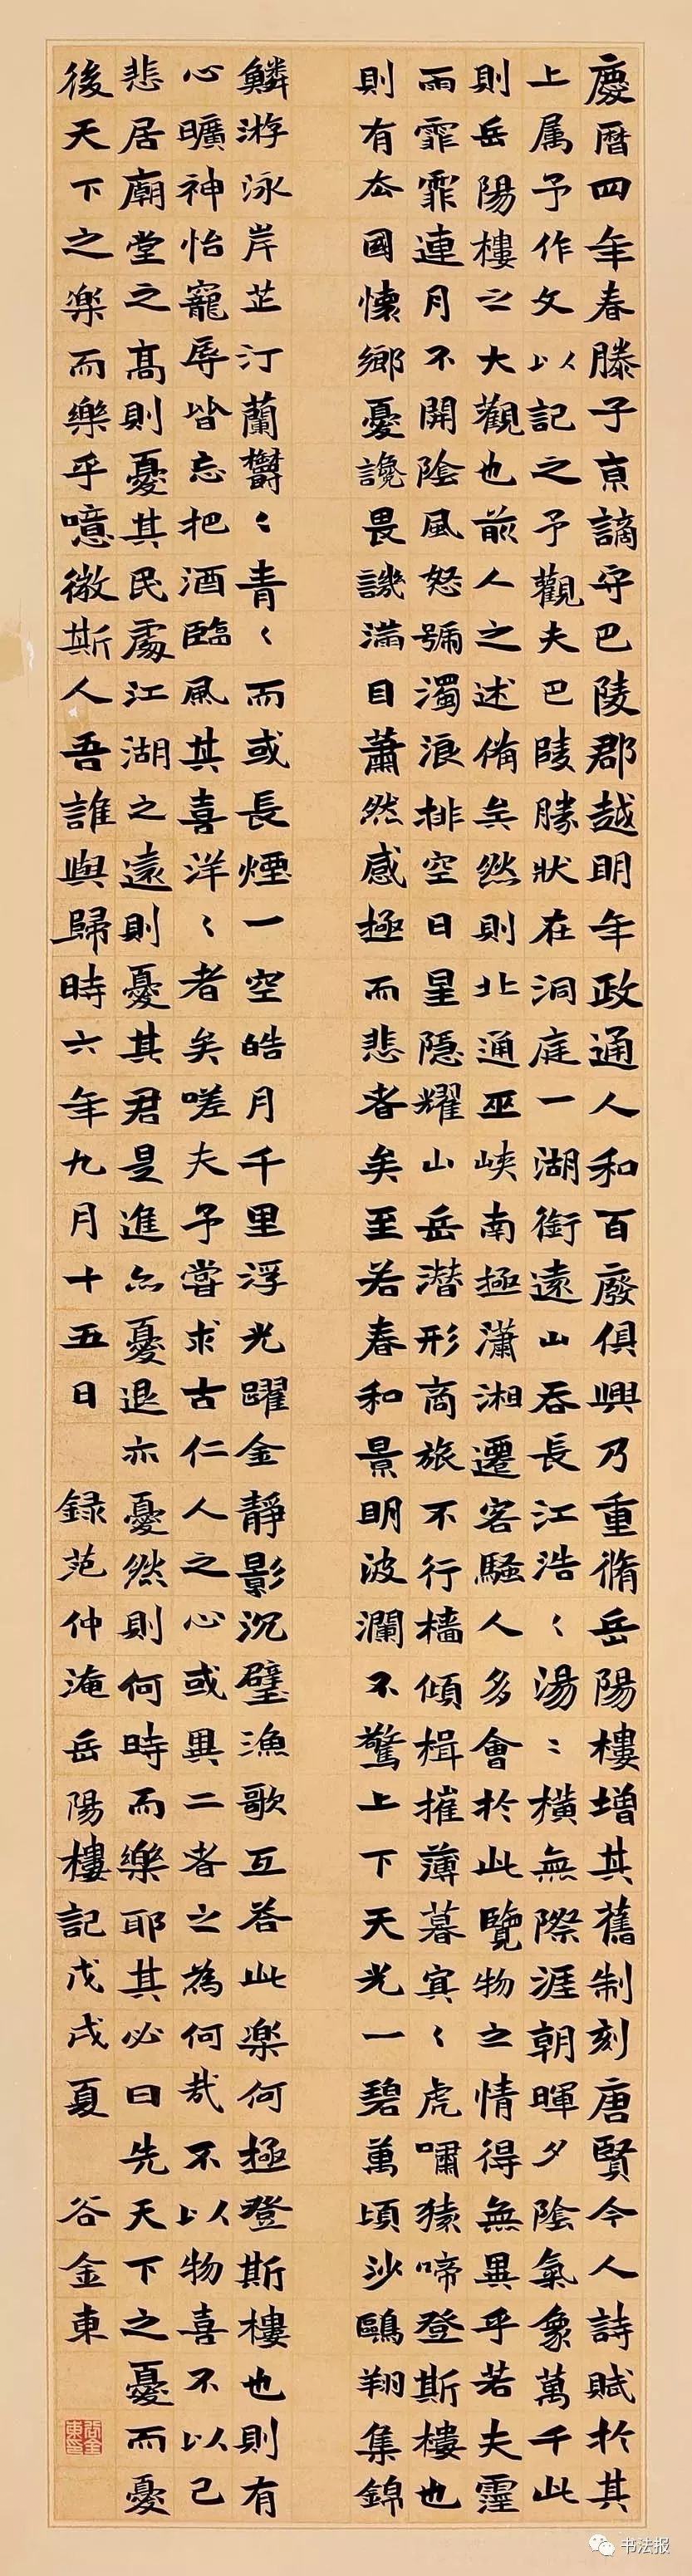 慶曆四年春滕子京謫守巴陵郡越明年政通人和百廢俱興乃重脩岳陽樓增其舊制刻唐賢今人詩賦於其
上属予作文以記之予觀夫巴陵勝狀在洞庭一湖銜遠山吞長江浩〻湯〻橫無際涯朝暉夕陰氣象萬千此
則岳陽樓之大觀也前人之述備矣然則北通巫峽南極瀟湘遷客騷人多會於此覽物之情得無異乎若夫霪
雨霏霏連月不開陰風怒號濁浪排空日星隱耀山岳潛形商旅不行檣傾楫摧薄暮冥〻虎嘯猿啼登斯樓也
則有去國懷鄉憂讒畏譏滿目蕭然感極而悲者矣至若春和景明波瀾不驚上下天光一碧萬頃沙鷗翔集錦
鱗游泳岸芷汀蘭欝〻青〻而或長煙一空皓月千里浮光躍金靜影沉璧漁歌互答此樂何極登斯樓也則有
心曠神怡寵辱皆忘把酒臨風其喜洋〻者矣嗟夫予嘗求古仁人之心或異二者之為何哉不以物喜不以己
悲居廟堂之高則憂其民處江湖之遠則憂其君是進亦憂退亦憂然則何時而樂耶其必曰先天下之憂而憂
後天下之樂而樂乎噫微斯人吾誰與歸時六年九月十五日 録范仲淹岳陽樓記戊戌夏 谷金東
谷金東印
书法报